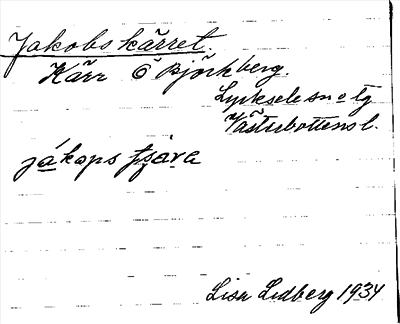 Jakobskärret.
Kärr Ö Björkberg.
Lycksele sn o tg
Västerbottens l.
jákaps
Lisa Lidberg 1934